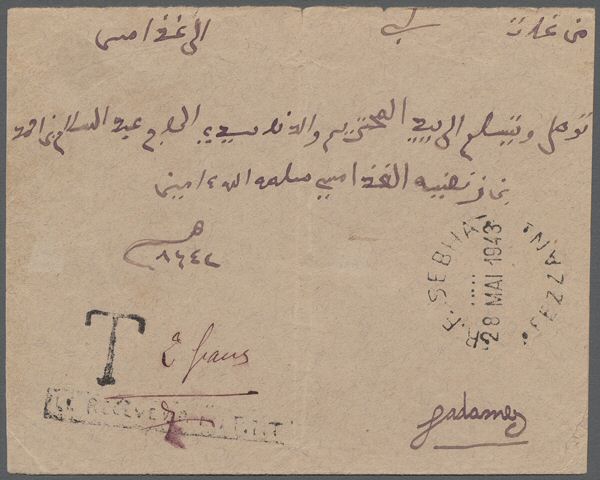 من غات
الى غدامس
توصل وتتسلم الى يد المحترم والدنا سيدي الحاج عبد السلام بن احمد
الغدامسي سلمه الله امين
٨٦٤٢
R.F. SEBHA
28 MAI 1943
FEZZAN
T
francs
LE RECEVEUR
gadames